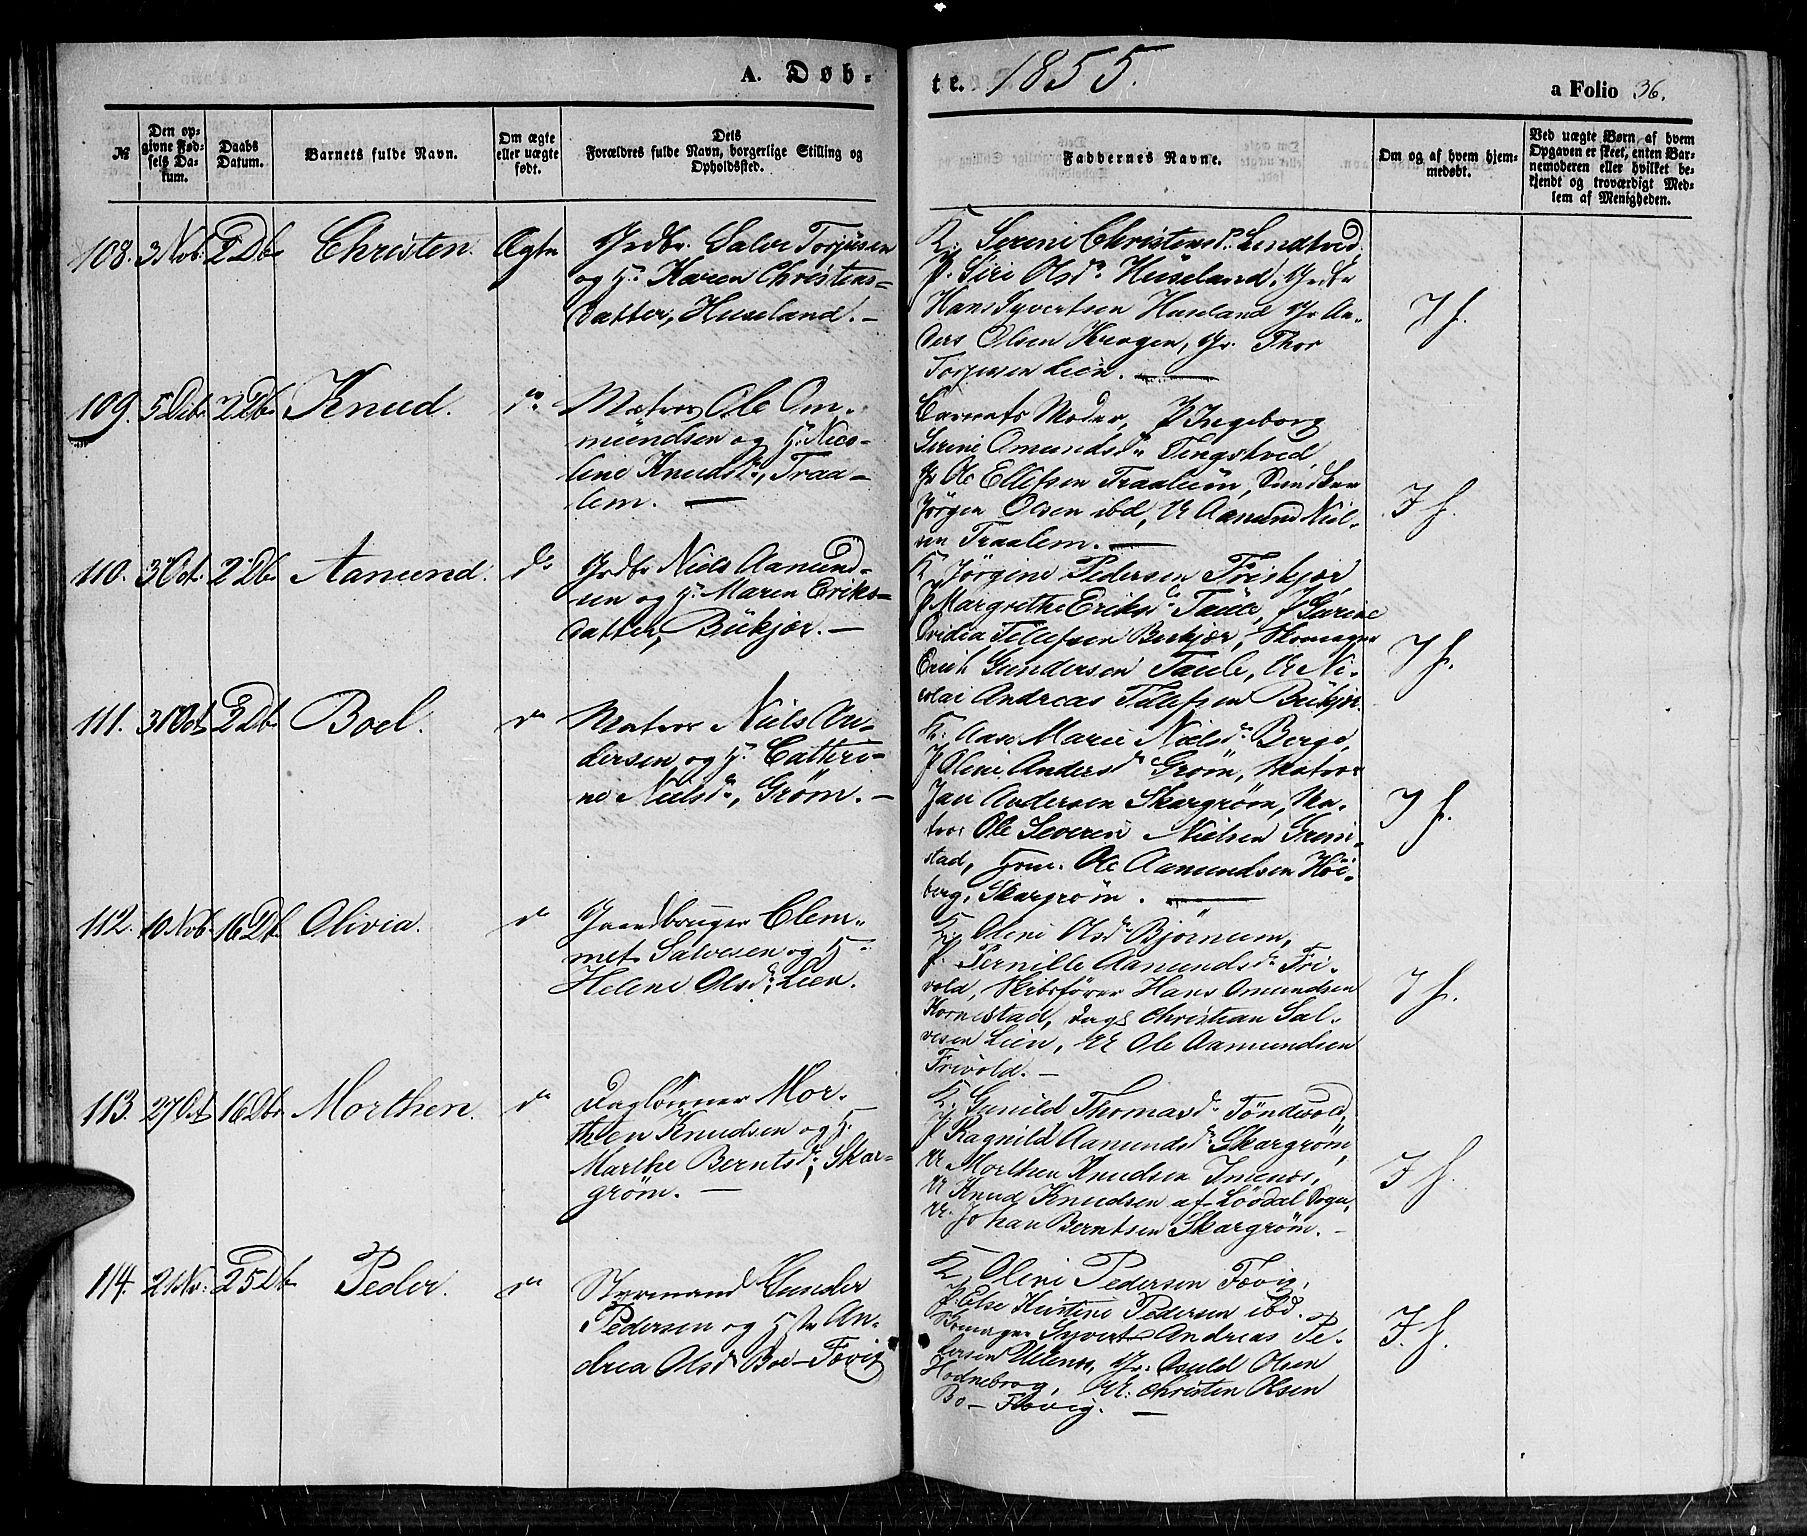 A. Døb-
te. 1855.
a Folio 36.
№
Den op-
givne Fød-
sels Da-
tum.
Daabs
Datum.
Barnets fulde Navn.
Om ægte
eller uægte
født.
Dets
Forældres fulde Navn, borgerlige Stilling og
Opholdssted.
Faddernes Navne.
Om og af hvem hjem-
medøbt.
Ved uægte Børn, af hvem
Opgaven er skeet, enten Bar-
nemoderen eller hvilket be-
kjendt og troværdigt Med-
lem af Menigheden.
108. 3 Nob. 2 Db. Christen. Ægte
Grdbr. Salve Torjusen
og H. Karen Christens-
datter, Huseland. —
K. Serine Christensdr. Lindtved,
P. Siri Olsdr. Huseland, Grdbr
Hans Syvertsen Huseland Gr. An-
ders Olsen Krogen, Gr. Thor
Torjusen Lien. —
J f.
109. 2 Db. Knud. do
Matros Ole Om-
mundsen og H. Nico-
line Knudsdr., Traa-
lem. —
Barnets Moder, P Ingeborg
Serine Omundsdr. Tingstved
Gr Ole Ellefsen Traaleim,
Jørgen Olsen ibd, U Aamund Niel-
sen Traalem. —
J f.
110. 3 Oct. 2 Db. Aamund. do
Grdbr Niels Aamund-
sen og H. Maren Eriks-
datter, Bükjær. —
K Jørgine Pedersen
P Margrethe Eriksdr. Taule,
Tellefsen Bukjær, Skomager
Erik Gundersen Taule, U Ni-
colai Andreas Tellefsen Bukjær.
J f.
111. 31 Oct 2 Db. Boel. do
Matros Niels An-
dersen og H. Cathri-
ne Nielsdr., Grøm. —
K. Aase Marie Nielsdr. Berge,
P Oline Andersdr. Grøm, Matros
Jan Andersen Skargrøm, Ma-
tros Ole Severin Nielsen Grim-
stad, Ole Aamundsen Høi-
berg, Skargrøm. —
J f.
112. 10 Nob. 16 Db. Olivia. do
Gaardbruger Clem-
met Salvesen og H.
Helene Olsdr., Lien.
K. Oline Olsdr. Bjørnum,
P. Pernille Aamundsdr. Fri-
vold, Skibsfører Hans Omundsen
Hornestad, Dagl Christian Sal-
vesen Lien, U Ole Aamundsen
Frivold. —
J f.
113. 27 Oct 16 Dbr Morthen. do
Daglønner Mor-
then Knudsen og H.
Marthe Berntsdr., Skar-
grøm. —
K. Gunild Thomasdr. Tøndvold,
P Ragnild Aamundsdr. Skargrøm,
U. Morthen Knudsen Imenes,
U Knud Knudsen af Løddal Sogn,
U. Johan Berntsen Skargrøm. —
J f.
114. 21 Nr. 25 Db Peder. do
Styrmand Gunder
Pedersen og Hstr An-
drea Olsdr Boe-Fævig
K. Oline Pedersen Fævig,
P. Else Kirstine Pedersen ibd.
Skomager Syvert Andreas Pe-
dersen Gr. Osuld Olsen
Hodnebrog, U. Christen Olsen
Bo- Fævig. —
J. f.